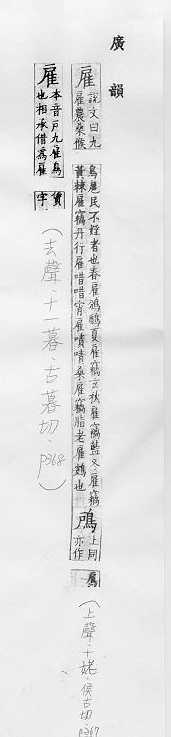 廣韻
雇 說文曰九雇農桑候
鳥扈民不婬者也春雇鳻鶞夏雇竊玄秋雇竊藍冬雇竊
黃棘雇竊丹行雇唶唶宵雇嘖嘖桑雇竊脂老雇鷃也
鳸 上同 亦作 鳸
(上聲·十姥·侯古切·p267
雇 本音戶九雇鳥也相承借為雇賃字
(去聲·十一暮·古暮切·p368)